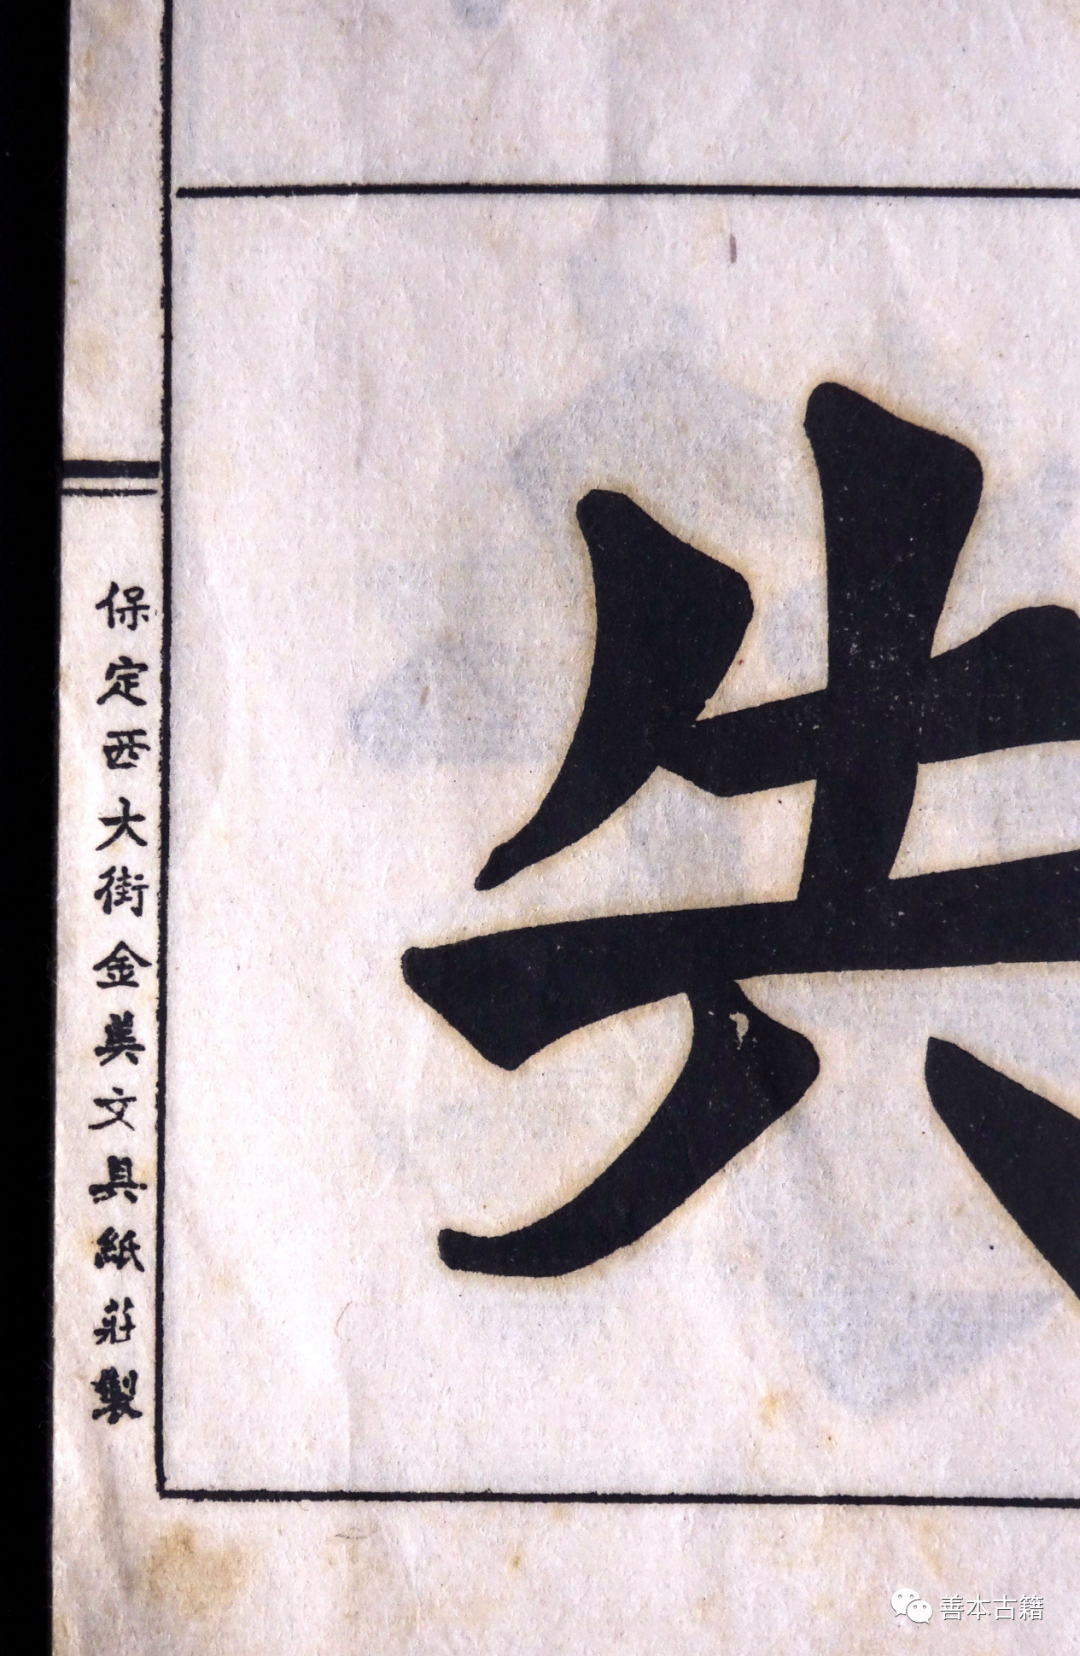 保定西大街金美文具紙莊製
善本古籍